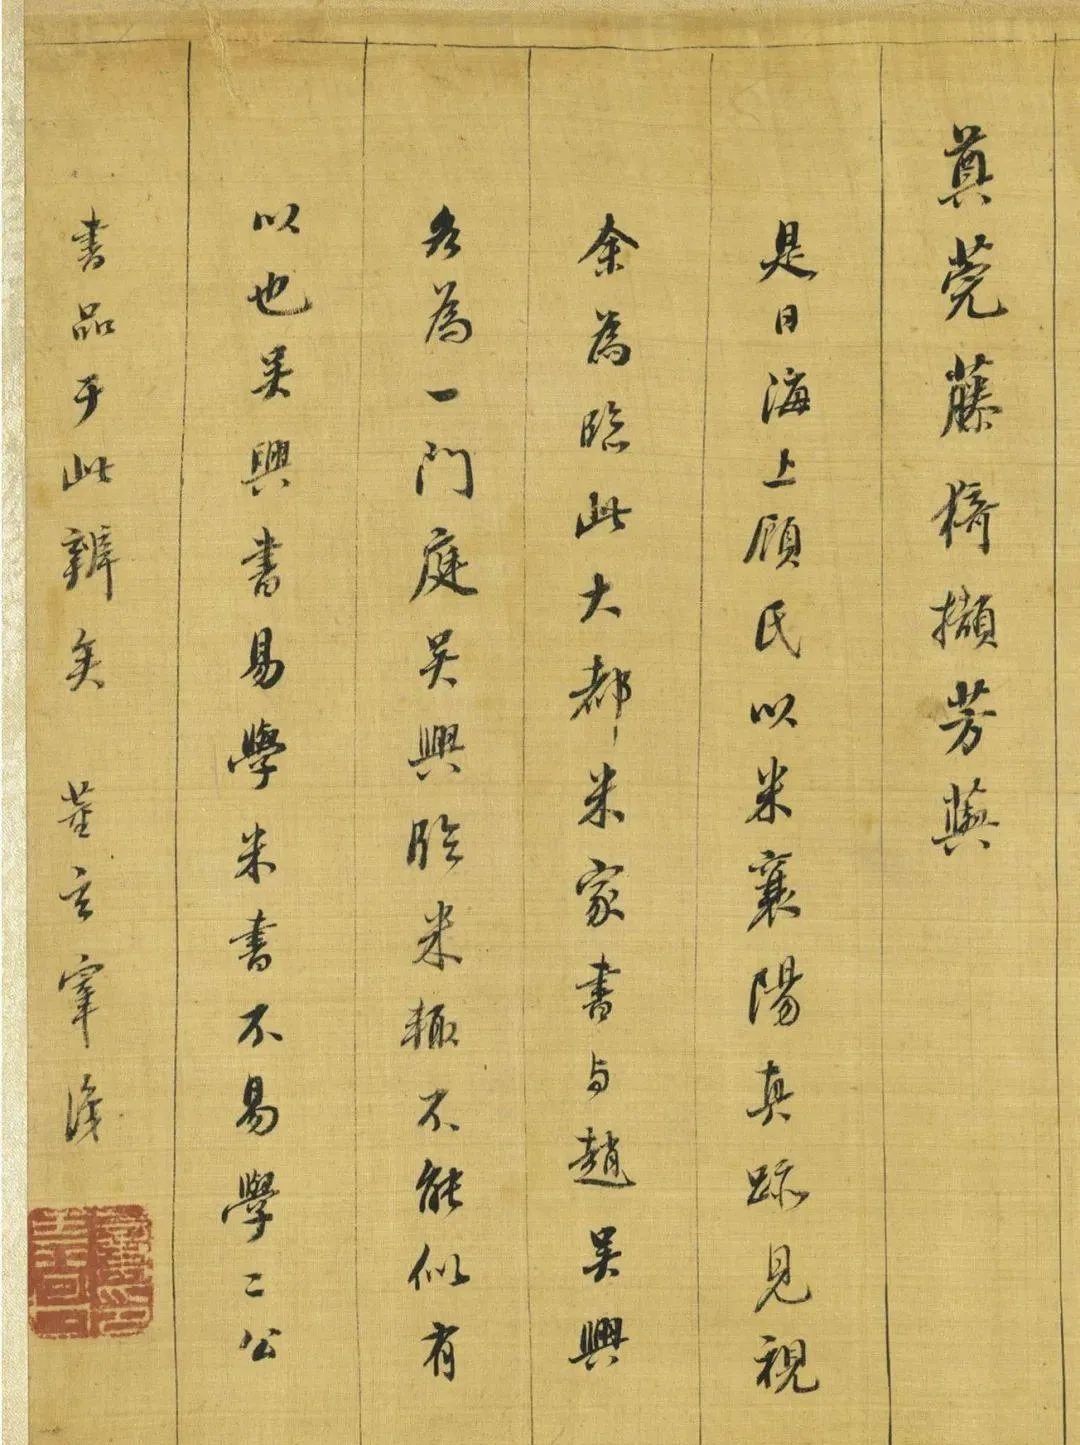 真荒藤猗擷芳蕪
是日海上顧氏以米襄陽真跡見視
余為臨此大都米家書与趙吳興
各為一門庭吳興臨米輒不能似有
以也吳興書易學米書不易學二公
書品于此辨矣 董玄宰識